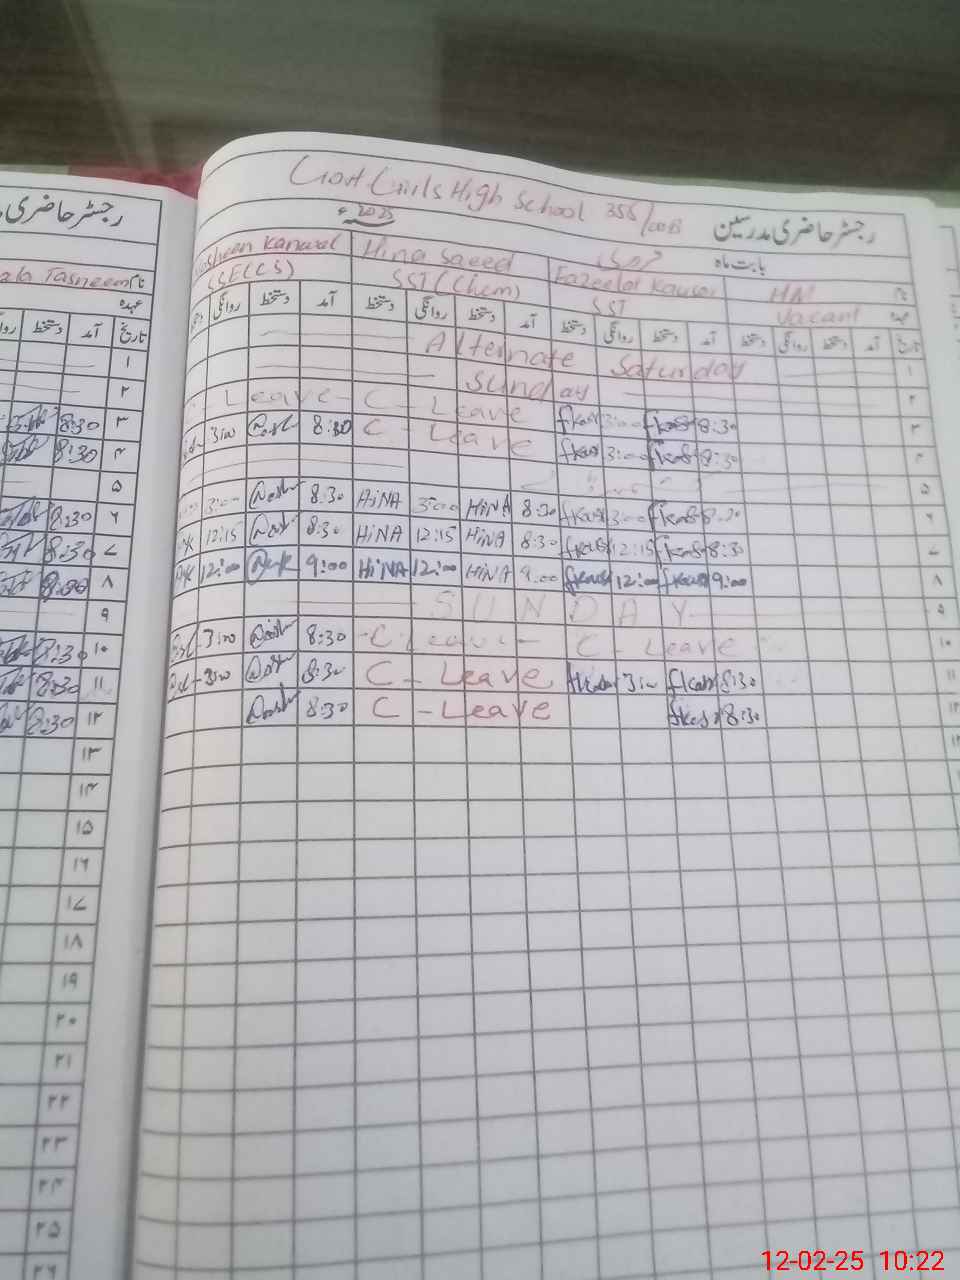 Govt Girls High School 355/WB
رجسٹر حاضری مدرسین
2025ء
فروری
بابت ماہ
Kanwal Hina Saeed Fazeelat Kausar HM نام
SSE(CS) SST(Chem) SST Vacant عہدہ
روانگی دستخط آمد دستخط روانگی دستخط آمد دستخط روانگی دستخط آمد دستخط روانگی دستخط آمد تاریخ
Alternate Saturday ۱
Sunday ۲
Leave C-Leave 3:00 8:30 ۳
3:00 8:30 C-Leave 3:00 8:30 ۴
۵
3:00 8:30 HiNA 3:00 HiNA 8:30 3:00 8:30 ۶
12:15 8:30 HiNA 12:15 HiNA 8:30 12:15 8:30 ۷
12:00 9:00 HiNA 12:00 HiNA 9:00 12:00 9:00 ۸
SUNDAY ۹
3:00 8:30 C Leave C Leave ۱۰
3:00 8:30 C-Leave 3:00 8:30 ۱۱
8:30 C-Leave 8:30 ۱۲
رجسٹر حاضری
Tasneem نام
عہدہ
دستخط آمد تاریخ
۱
۲
8:30 ۳
8:30 ۴
۵
8:30 ۶
8:30 ۷
۸
۹
8:30 ۱۰
8:30 ۱۱
8:30 ۱۲
۱۳
۱۴
۱۵
۱۶
۱۷
۱۸
۱۹
۲۰
۲۱
۲۲
۲۳
۲۴
۲۵
۲۶
12-02-25 10:22